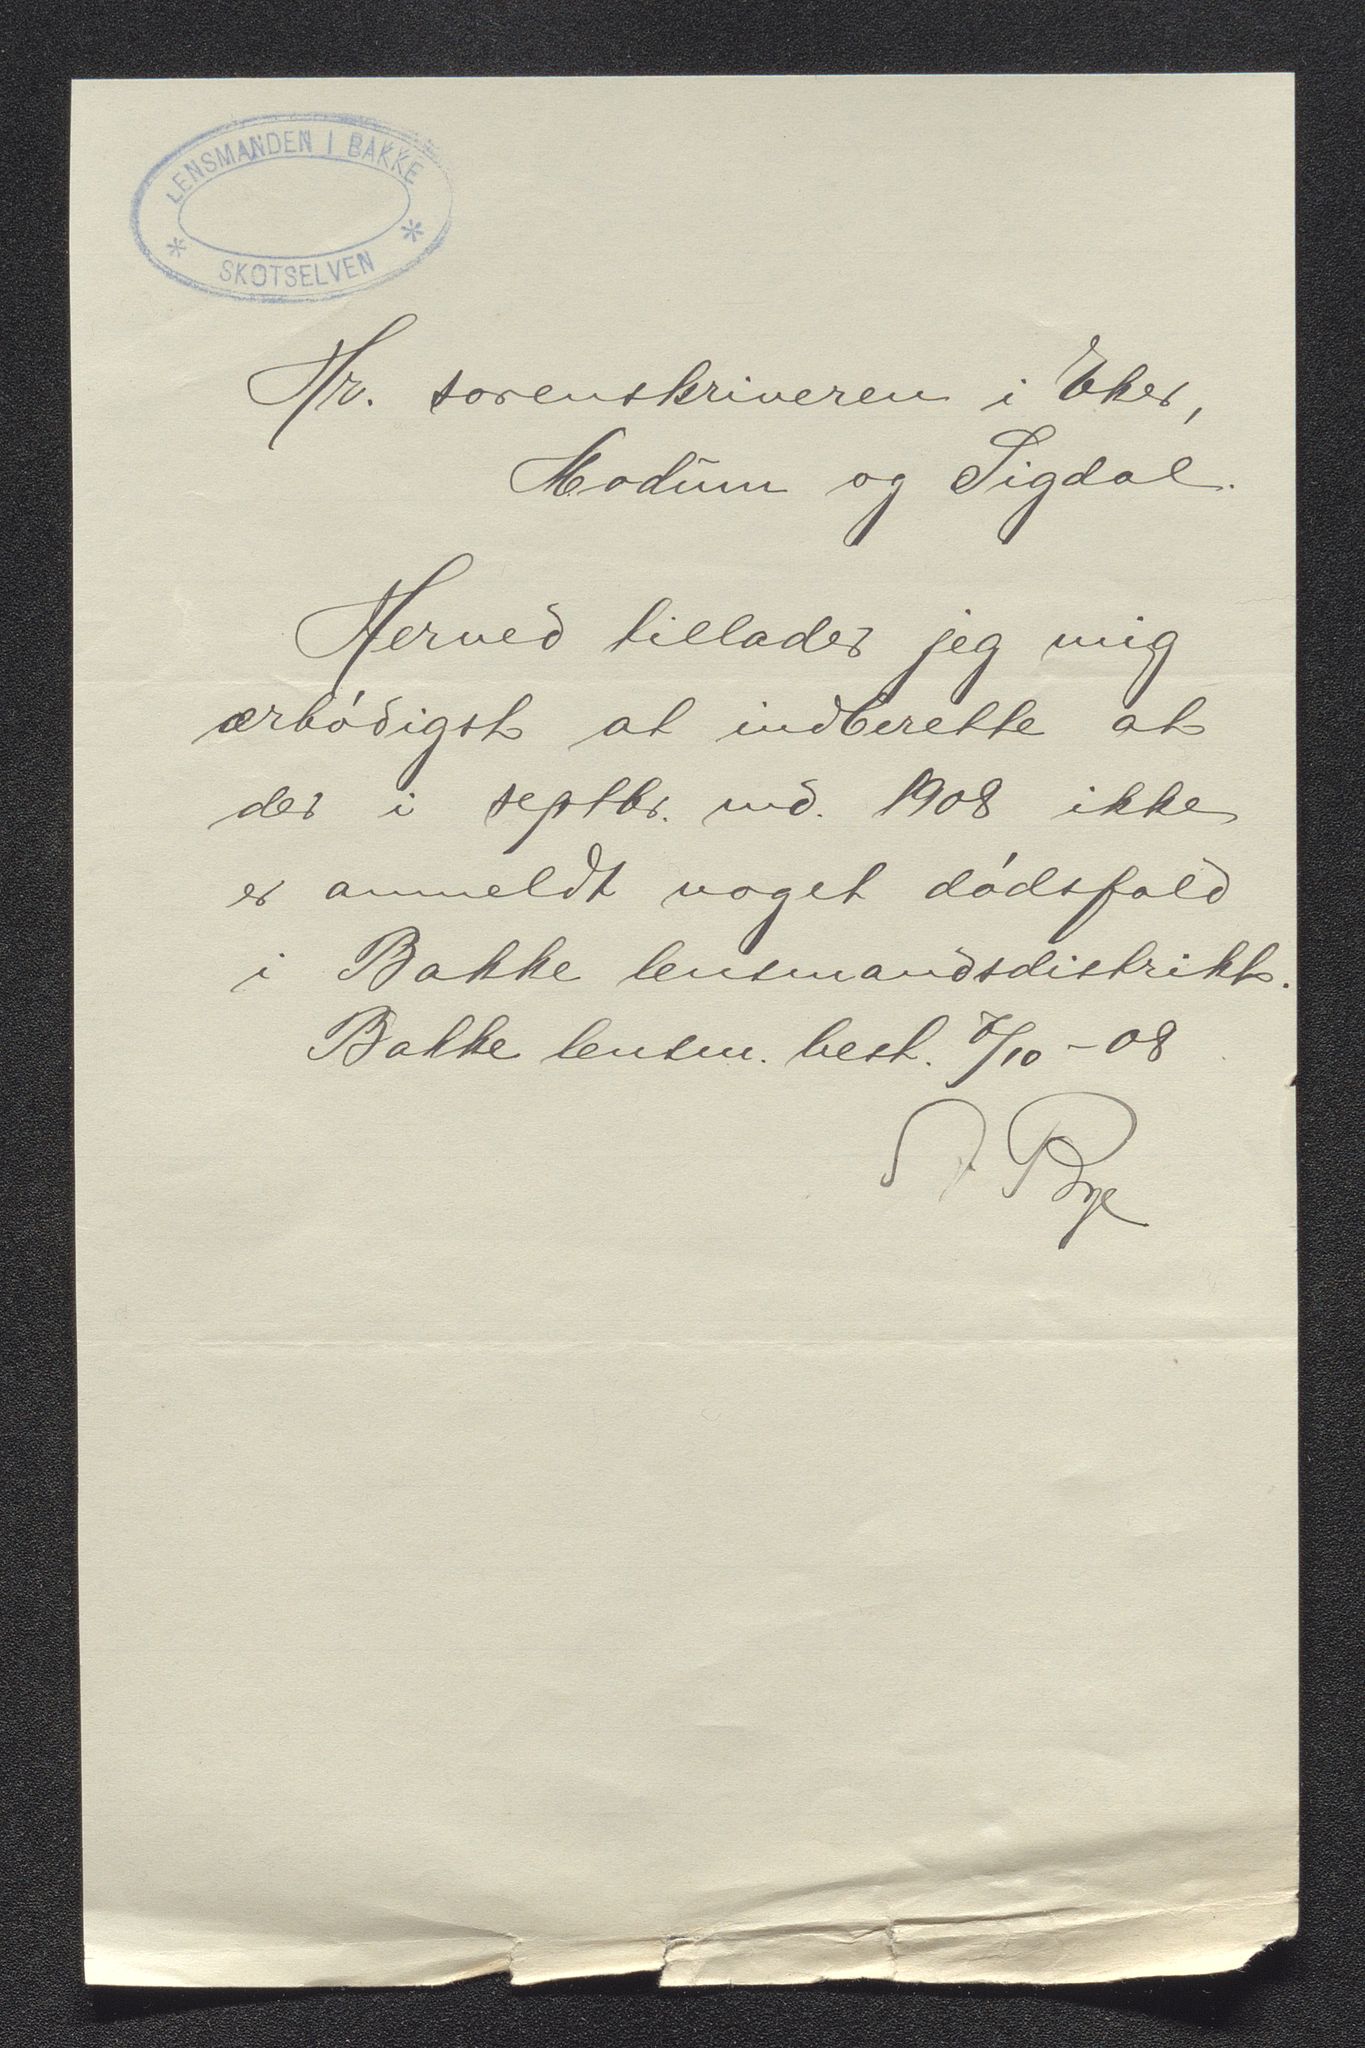 LENSMANDEN I BAKKE
* SKOTSELVEN *
Hr. sorenskriveren i Eker,
Modum og Sigdal.
Herved tillader jeg mig
ærbódigst at indberette at
der i septbr. md. 1908 ikke
er anmeldt noget dódsfald
i Bakke lensmandsdistrikt.
Bakke lensm. best. /10 - 08
Bye